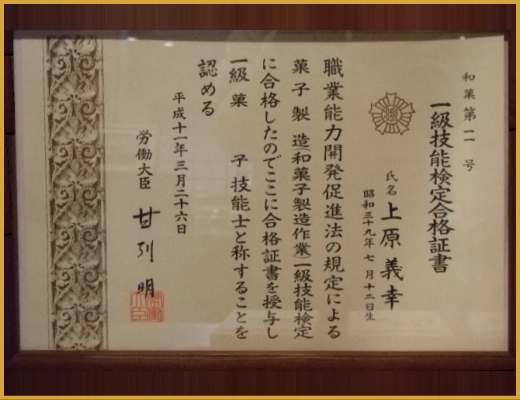 和菓第一一号
一級技能検定合格証書
氏名 上原義幸
昭和三十九年七月十二日生
職業能力開発促進法の規定による
菓子製造(和菓子製造作業)一級技能検定
に合格したのでここに合格証書を授与し
一級菓子技能士と称することを
認める
平成十一年三月二十六日
労働大臣 甘利 明